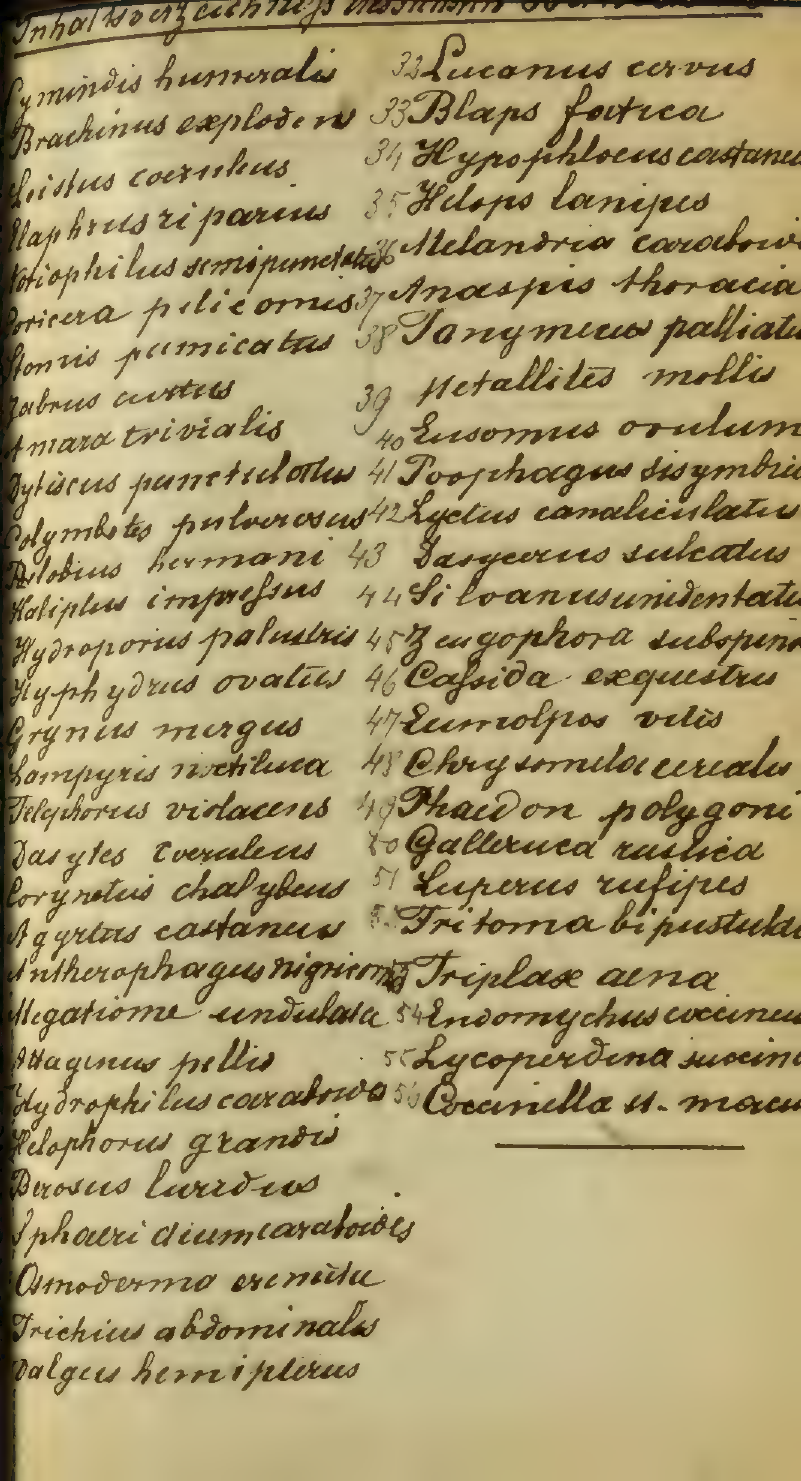 Inhaltsverzeichniß
Cymindis humeralis
Brachinus explodens
Leistus coeruleus
Elaphrus riparius
Notiophilus semipunctatus
Loricera pilicornis
Stomis pumicatus
Zabrus curtus
Amara trivialis
Dytiscus punctulatus
Colymbetes pulverosus
Pelobius hermani
Haliplus impreſsus
Hydroporius palustris
Hyphydrus ovatus
Gyrynus mergus
Lampyris noctiluca
Telephorus violaceus
Dasytes coeruleus
Corynetus chalybeus
Agyrtus castaneus
Antherophagus nigricornis
Megatome undulata
Attagenus pellio
Hydrophilus caraboides
Helophorus grandis
Berosus luridus
Sphaeridium caraboides
Osmoderma eremita
Trichius abdominalis
Valgus hemipterus
32 Lucanus cervus
33 Blaps foetica
34 Hypophloeus castaneu
35 Helops lanipes
36 Melandria caraboi
37 Anaspis thoracia
38 Tanymecus palliatu
39 Metallites mollis
40 Eusomus ovulum
41 Poophagus sisymbrii
42 Lyctus canaliculatus
43 Dasycerus sulcatus
44 Silvanus unidentatu
45 Zeugophora subspino
46 Caſsida exquestris
47 Eumolpos vitis
48 Chrysomela cerealis
49 Phaedon polygoni
50 Galleruca rustica
51 Luperus rufipes
52 Tritoma bipustula
53 Triplax aena
54 Endomychus coccineus
55 Lycoperdina succin
56 Coccinella 11-macu